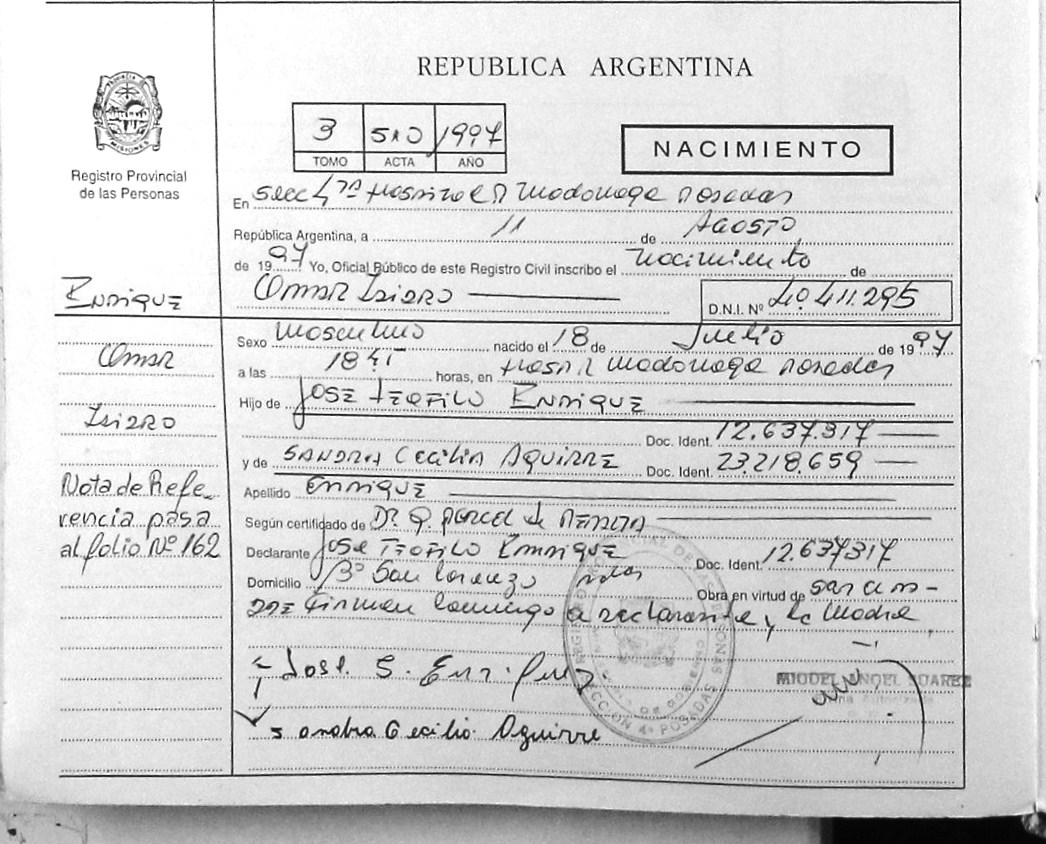 REPUBLICA ARGENTINA
PROVINCIA DE MISIONES
Registro Provincial
de las Personas
3 510 1997
TOMO ACTA AÑO
NACIMIENTO
En Secc 4ta Hospital R Madariaga Posadas
República Argentina, a 11 de AGOSTO
de 1997 Yo, Oficial Público de este Registro Civil inscribo el nacimiento de
OMAR ISIDRO
D.N.I. Nº 40.411.295
ENRIQUE
OMAR
ISIDRO
Nota de Refe-
rencia pasa
al folio Nº 162
Sexo masculino nacido el 18 de Julio de 1997
a las 1845 horas, en Hosp R Madariaga Posadas
Hijo de JOSE TEOFILO ENRIQUE
Doc. Ident. 12.637.317
y de SANDRA CECILIA AGUIRRE Doc. Ident. 23.218.659
Apellido ENRIQUE
Según certificado de Dr.
Declarante JOSE TEOFILO ENRIQUE Doc. Ident. 12.637317
Domicilio Bº San Lorenzo Pdas Obra en virtud de ser el pa-
DRE Firman conmigo el declarante y la Madre
José
Sandra Cecilia Aguirre
REGISTRO PROVINCIAL DE LAS PERSONAS
SECCION 4ª POSADAS
MIGUEL ANGEL SUAREZ